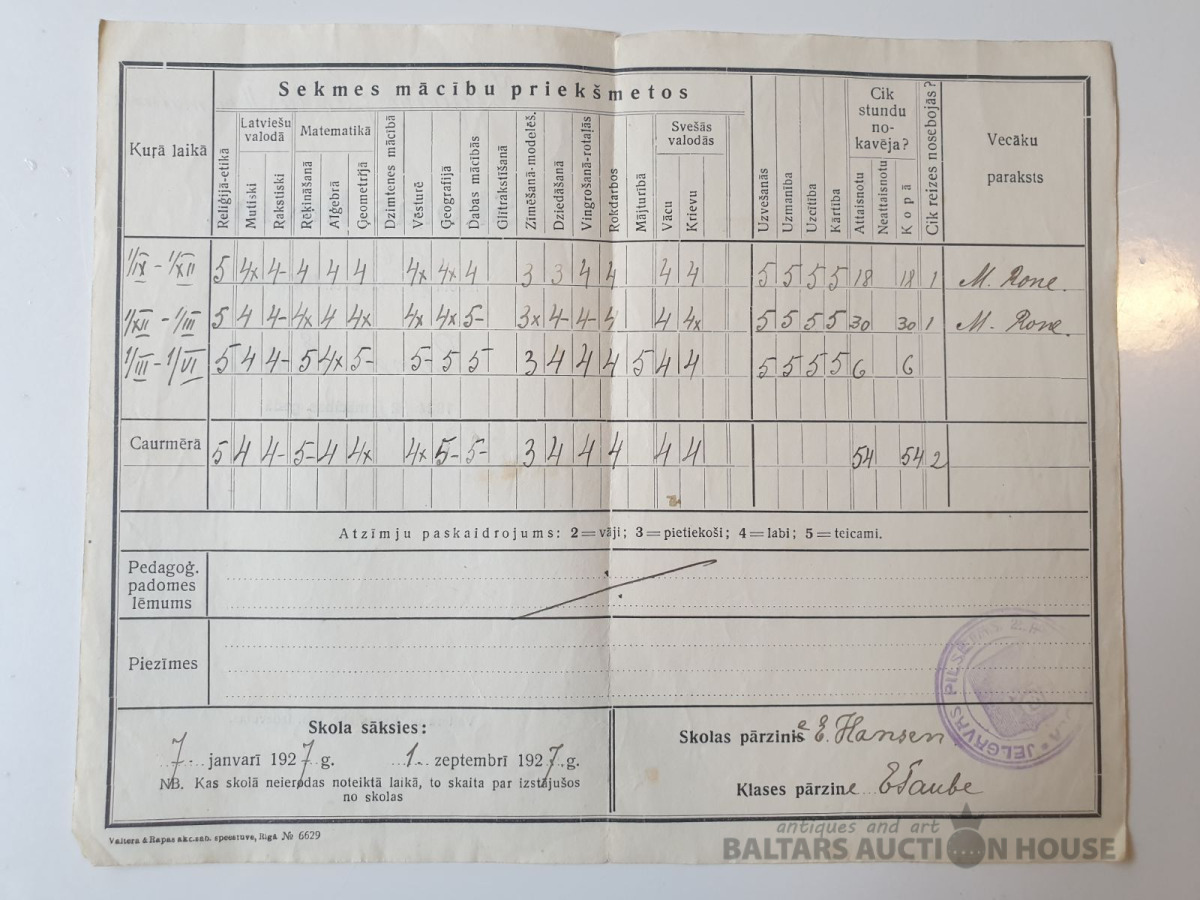 Sekmes mācību priekšmetos
Kuŗā laikā
Reliģijā-etikā
Latviešu valodā
Mutiski
Rakstiski
Matematikā
Rēķināšanā
Algebrā
Ģeometrijā
Dzimtenes mācībā
Vēsturē
Ģeografijā
Dabas mācībās
Glītrakstīšanā
Zīmēšanā-modelēš.
Dziedāšanā
Vingrošanā-rotaļās
Rokdarbos
Mājturībā
Svešās valodās
Vācu
Krievu
Uzvešanās
Uzmanība
Uzcītība
Kārtība
Cik stundu no-kavēja?
Attaisnotu
Neattaisnotu
Kopā
Cik reizes nosebojās?
Vecāku paraksts
1/IX - 1/XII 5 4x 4- 4 4 4 4x 4x 4 3 3 4 4 4 4 5 5 5 5 18 18 1 M. Rone.
1/XII - 1/III 5 4 4- 4x 4 4x 4x 4x 5- 3x 4- 4- 4 4 4x 5 5 5 5 30 30 1 M. Rone.
1/III - 1/VI 5 4 4- 5 4x 5- 5- 5 5 3 4 4 4 5 4 4 5 5 5 5 6 6
Caurmērā 5 4 4- 5- 4 4x 4x 5- 5- 3 4 4 4 4 4 54 54 2
Atzīmju paskaidrojums: 2 = vāji; 3 = pietiekoši; 4 = labi; 5 = teicami.
Pedagoģ. padomes lēmums
Piezīmes
JELGAVAS PILSĒTAS
Skola sāksies:
7. janvarī 1927. g. 1. zeptembrī 1927. g.
NB. Kas skolā neierodas noteiktā laikā, to skaita par izstājušos
no skolas
Skolas pārzine E. Hansen
Klases pārzine E Taube
Valtera & Rapas akc. sab. spiestuve, Rīgā № 6629
antiques and art
BALTARS AUCTION HOUSE